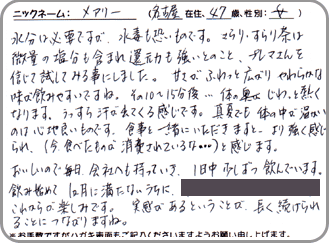 ニックネーム： メアリー （名古屋在住、47歳、性別：女）
水分は必要ですが、水毒も恐いものです。さらり・すらり茶は
微量の塩分も含まれ還元力も強いとのこと、
信じて試してみる事にしました。 甘さがふわっと広がり やわらかな
味が飲みやすいですね。その10〜15分後… 体の奥が じわっと熱く
なります。うっすら汗が出てくる感じです。真夏でも 体の中が温かい
のは心地良いものです。 食事と一緒にいただきますと、より強く感じ
られ、（今 食べたものが 消費されているな…）と感じます。
おいしいので毎日、会社へも持っていき、1日中 飲んでいます。
飲み始めて 1ヵ月に満たないうちに、
これからが楽しみです。 実感があるということが、長く続けられ
ることにつながりますね。
※お手数ですがハガキ裏面もご記入くださいますようお願い申し上げます。